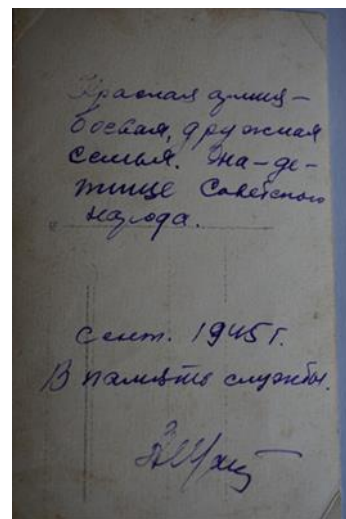 Красная армия –
боевая, дружная
семья. Она – де-
тище Советского
народа.
сент. 1945 г.
В память службы.